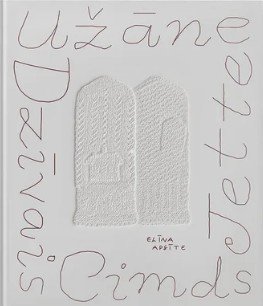 Užāne
Dzīvais
Cimds
Jette
ELĪNA
APSĪTE